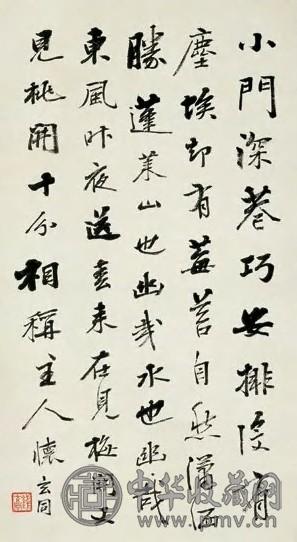 小門深巷巧安排沒有
塵埃却有莓苔自然瀟洒
勝蓬萊山也幽哉水也幽哉
東風昨夜送春来在見梅開又
見桃開十分相稱主人懷
玄同
中华收藏网